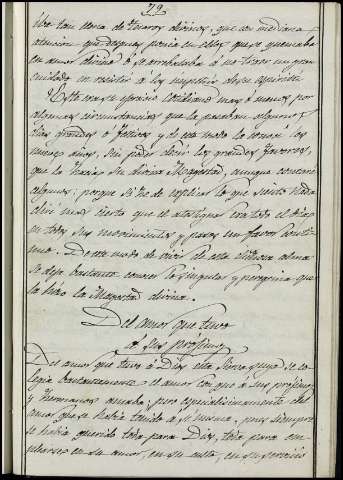 29
tan llena de tesoros divinos, que con mediana
atencion que despues ponia en ellos que se quemaba
en amor divino ó se arrebataba á no tener un gran
cuidado en resistir á los impetus de su espiritu.
Este era su ejercicio cotidiano mas ó menos por
algunas circunstancias que le pasaban algunos
dias grandes ó festivos y de este modo la
muchos años, sin poder decir los grandes favores,
que la hacia su divina Magestad, aunque contaré
algunos: porque si he de esplicar lo que siento nada
diré mas cierto que el atestiguar era todo el dia
en todos sus movimientos y pasos un favor conti-
nuo. De este modo de vivir de esta dichosa alma
se deja bastante conocer lo singular y peregrina que
la hizo la Magestad divina.
Del amor que tuvo
á sus prójimos
Del amor que tuvo á Dios esta Sierva suya se co-
legia bastantemente el amor con que á sus projimos
y hermanos amaba; pero especialisimamente el
amor que se habia tenido á si misma, pues siempre
se habia querido toda para Dios, toda para em-
plearse en su amor, en su culto, en su servicio